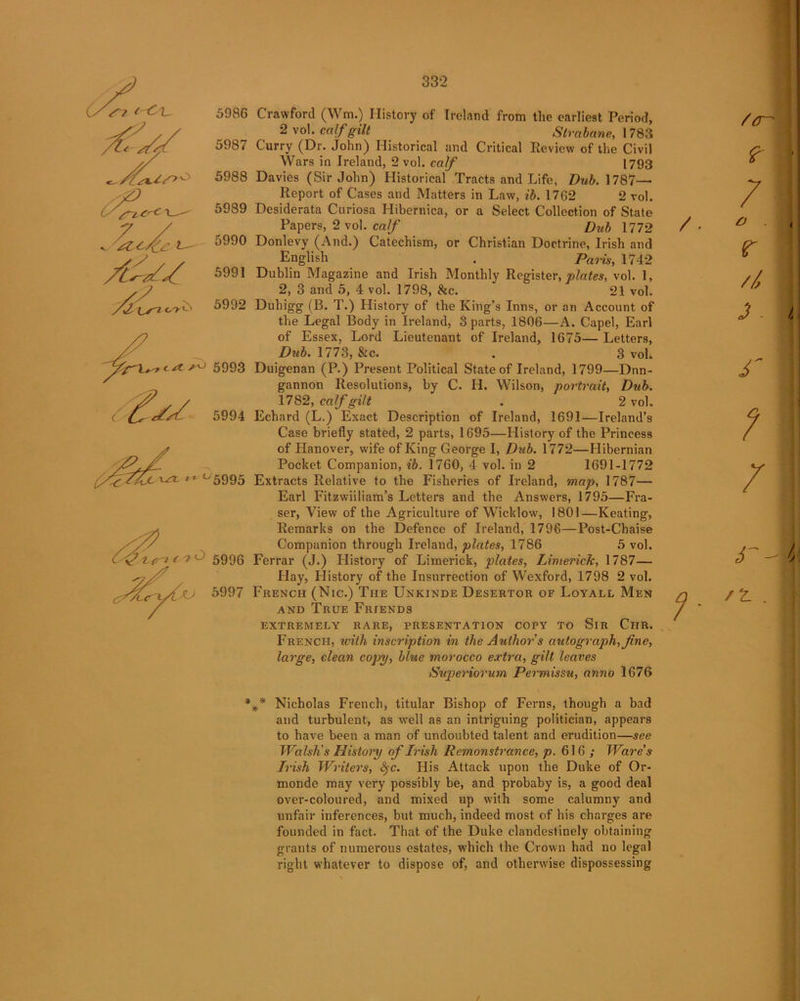 332
5986 Crawford (Wm.) History of Ireland from the earliest Period,
2 vol. calf gilt Strabane, 1783
5987 Curry (Dr. John) Historical and Critical Review of the Civil
Wars in Ireland, 2 vol. calf 1793
5988 Davies (Sir John) Historical Tracts and Life, Dub. 1787—
Report of Cases and Matters in Law, ib. 1762 2 vol.
5989 Desiderata Curiosa Hibernica, or a Select Collection of State
Papers, 2 vol. calf Dub 1772
5990 Donlevy (And.) Catechism, or Christian Doctrine, Irish and
English . Paris, 1742
5991 Dublin Magazine and Irish Monthly Register, plates, vol. 1,
2, 3 and 5, 4 vol. 1798, &c. 21 vol.
5992 Duhigg (B. T.) History of the King's Inns, or an Account of
the Legal Body in Ireland, 3 parts, 1806—A. Capel, Earl
of Essex, Lord Lieutenant of Ireland, 1675—Letters,
Dub. 1773, &c. . 3 vol.
5993 Duigenan (P.) Present Political State of Ireland, 1799—Dnn-
gannon Resolutions, by C. H. Wilson, portrait, Dub.
1782, calf gilt . 2 vol.
5994 Echard (L.) Exact Description of Ireland, 1691—Ireland's
Case briefly stated, 2 parts, 1695—History of the Princess
of Hanover, wife of King George I, Dub. 1772—Hibernian
Pocket Companion, ib. 1760, 4 vol. in 2 1691-1772
5995 Extracts Relative to the Fisheries of Ireland, map, 1787—
Earl Fitzwiiliam's Letters and the Answers, 1795—Fra-
ser, View of the Agriculture of Wicklow, 1801—Keating,
Remarks on the Defence of Ireland, 1796—Post-Chaise
Companion through Ireland, plates, 1786 5 vol.
5996 Ferrar (J.) History of Limerick, plates, Limerick, 1787—
Hay, History of the Insurrection of Wexford, 1798 2 vol.
5997 French (Nic.) The Unkinde Desertor of Loyall Men
and True Friends
extremely rare, presentation copy to Sir Chr.
French, with inscription in the Author's autograph, fine,
large, clean copy, blue morocco extra, gilt leaves
Superiorum Permissu, anno 1676
*** Nicholas French, titular Bishop of Ferns, though a bad
and turbulent, as well as an intriguing politician, appears
to have been a man of undoubted talent and erudition—see
Walsh's History of Irish Remonstrance, p. 616; Ware's
Irish Writers, &c. His Attack upon the Duke of Or-
monde may very possibly be, and probaby is, a good deal
over-coloured, and mixed up with some calumny and
unfair inferences, but much, indeed most of his charges are
founded in fact. That of the Duke clandestinely obtaining
grants of numerous estates, which the Crown had no legal
right whatever to dispose of, and otherwise dispossessing